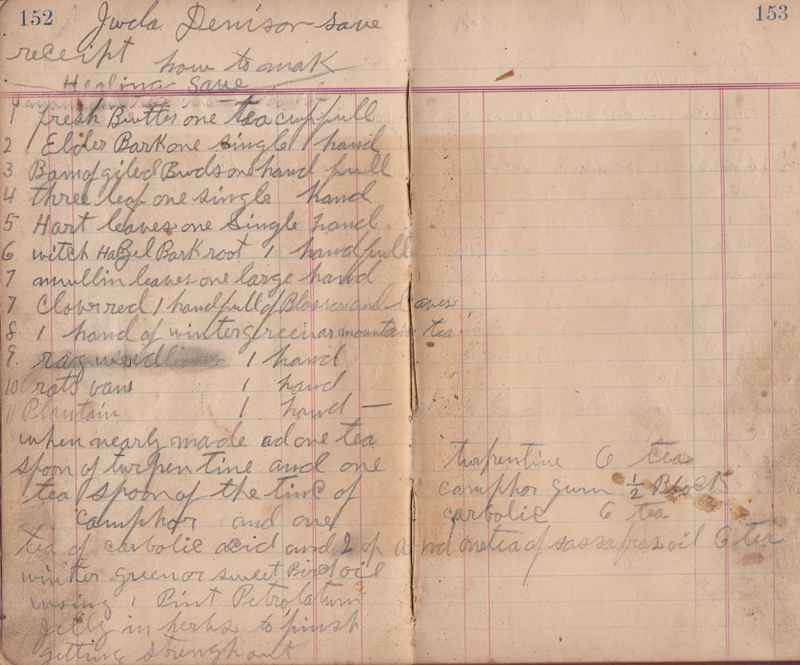 152
Jwda Denison save
receipt how to mak
Healing Save
1 fresh Butter one tea cup full
2 Elder Bark one single hand
3 Bamofgiled Buds one hand full
4 three leaf one single hand
5 Hart leaves one single hand
6 witch Hazel Bark root 1 handfull
7 mullin leaves one large hand
7 Clover red 1 handfull of Blossom and leaves
8 1 hand of wintergreen or mountain tea
9. rag weed 1 hand
10 rats vane 1 hand
11 Plantain 1 hand —
when nearly made ad one tea
spoon of turpentine and one
tea spoon of the tinc of
camphor and one
tea of carbolic acid and 2 of and one tea of sassafras oil 6 tea
winter green or sweet Birch oil
using 1 Pint Petrolatum
jelly in herbs to finish
getting strength out
153
turpentine 6 tea
camphor gum ½ Block
carbolic 6 tea